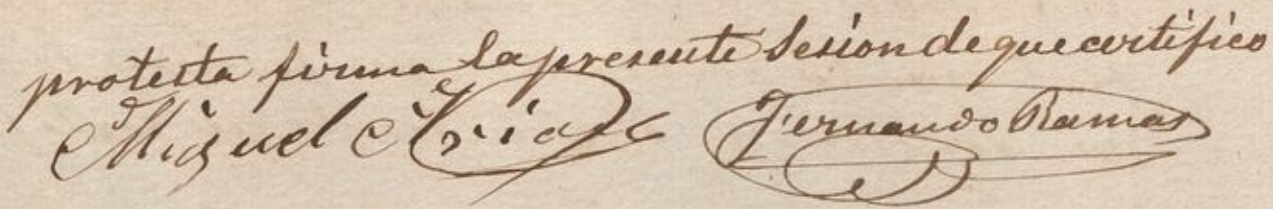 protesta firma la presente Sesion de que certifico
Miguel Fernando Ramos